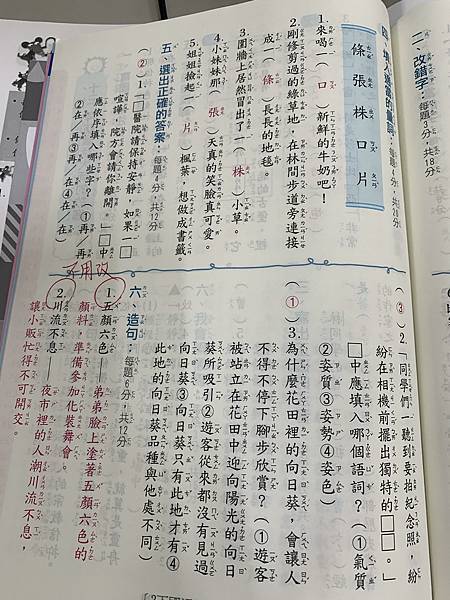 二、改錯字：每題3分，共18分
四、填入適當的量詞：每題4分，共20分
條 張 株 口 片
1.來喝一（口）新鮮的牛奶吧！
2.剛修剪過的綠草地，在林間步道旁連接
成一（條）長長的地毯。
3.圍牆上居然冒出了一（株）小草。
4.小妹妹那一（張）天真的笑臉真可愛。
5.姐姐撿起一（片）楓葉，想做成書籤。
五、選出正確的答案：每題4分，共12分
（②）1.「□醫院請保持安靜，如果一□
喧嘩，院方會請你離開。」□中
應依序填入哪些字？（①再／在
②在／再③再／再④在／在）
（③）2.「同學們一聽到要拍紀念照，紛
紛在相機前擺出獨特的□□。」
□中應填入哪個語詞？（①氣質
②姿質③姿勢④姿色）
（①）3.為什麼花田裡的向日葵，會讓人
不得不停下腳步欣賞？（①遊客
被站立在花田中迎向陽光的向日
葵所吸引②遊客從來都沒有見過
向日葵③向日葵只有此地才有④
此地的向日葵品種與他處不同）
六、造句：每題6分，共12分
不用改
1.五顏六色——弟弟臉上塗著五顏六色的
顏料，準備參加化裝舞會。
2.川流不息——夜市裡的人潮川流不息，
讓小販忙得不可開交